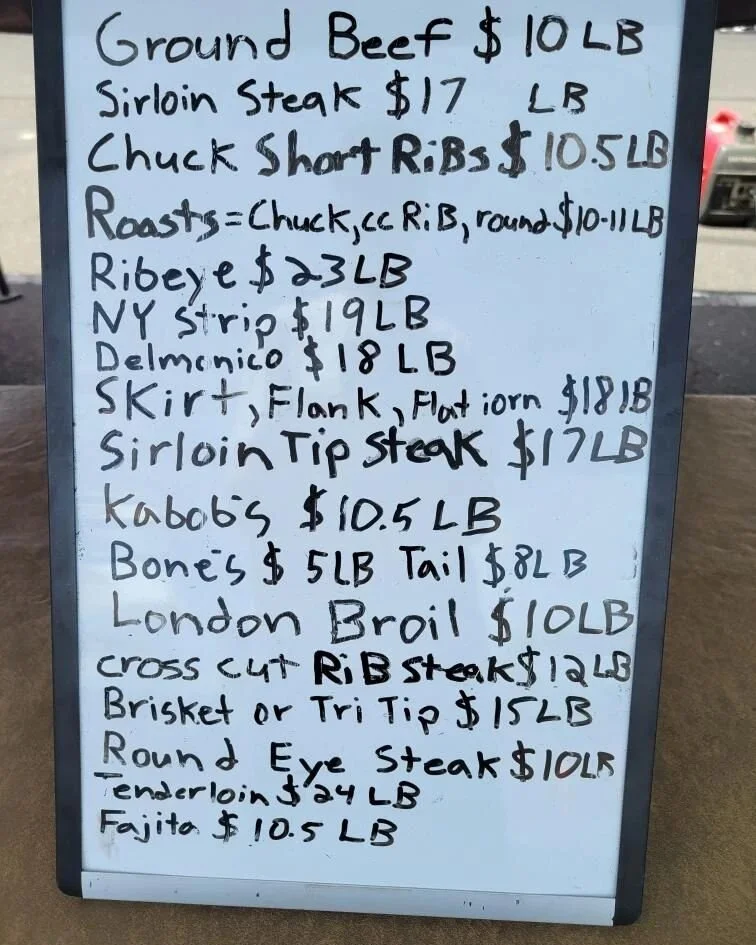 Ground Beef $10 LB
Sirloin Steak $17 LB
Chuck Short RiBs $10.5 LB
Roasts=Chuck,cc RiB, round $10-11 LB
Ribeye $23 LB
NY strip $19 LB
Delmonico $18 LB
SKirt, Flank, Flat iorn $18 lB
Sirloin Tip Steak $17 LB
Kabob's $10.5 LB
Bone's $ 5LB Tail $8LB
London Broil $10LB
cross cut RiB steak $12 LB
Brisket or Tri Tip $15LB
Round Eye Steak $10LB
Tenderloin $24 LB
Fajita $10.5 LB